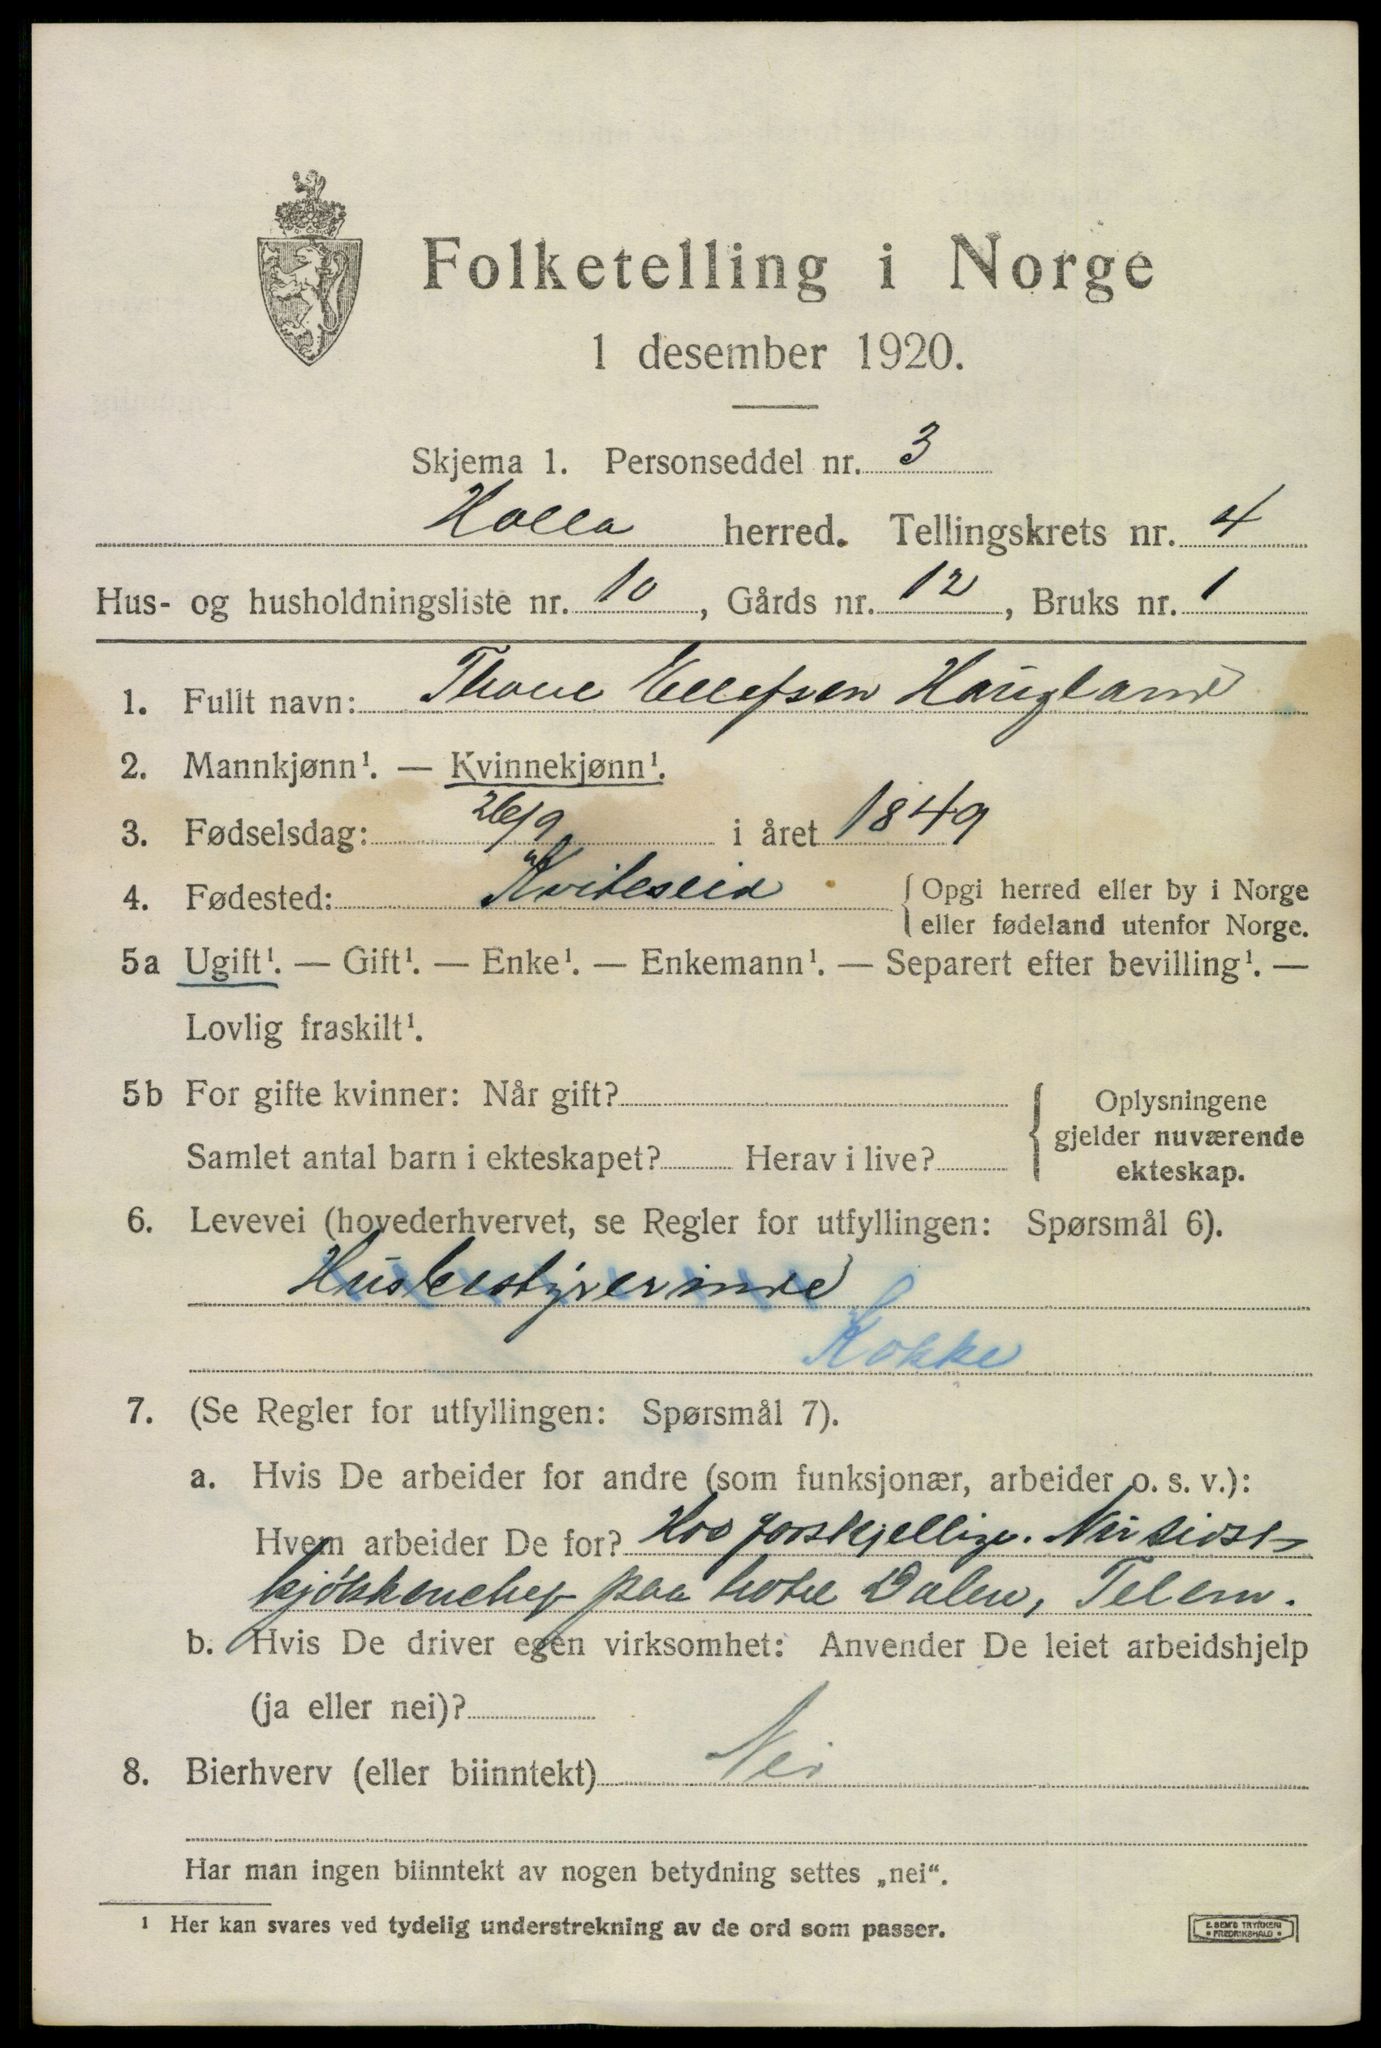 Folketelling i Norge
1 desember 1920.
Skjema 1. Personseddel nr. 3
Holla herred. Tellingskrets nr. 4
Hus- og husholdningsliste nr. 10, Gårds nr. 12, Bruks nr. 1
1. Fullt navn: Thone Ellefsen Haugland
2. Mannkjønn¹. — Kvinnekjønn¹.
3. Fødselsdag: 26/9 i året 1849
4. Fødested: Kviteseid { Opgi herred eller by i Norge
eller fødeland utenfor Norge.
5a Ugift¹. — Gift¹. — Enke¹. — Enkemann¹. — Separert efter bevilling¹. —
Lovlig fraskilt¹.
5b For gifte kvinner: Når gift?
Samlet antal barn i ekteskapet? Herav i live?
{ Oplysningene
gjelder nuværende
ekteskap.
6. Levevei (hovederhvervet, se Regler for utfyllingen: Spørsmål 6).
Husbestyrerinde
Kokke
7. (Se Regler for utfyllingen: Spørsmål 7).
a. Hvis De arbeider for andre (som funksjonær, arbeider o. s. v.):
Hvem arbeider De for? Hos forskjellige. Nu sidst
kjøkkenchef paa hotel Dalen, Telem.
b. Hvis De driver egen virksomhet: Anvender De leiet arbeidshjelp
(ja eller nei)?
8. Bierhverv (eller biinntekt) Nei
Har man ingen biinntekt av nogen betydning settes „nei“.
¹ Her kan svares ved tydelig understrekning av de ord som passer.
E. SEM'S TRYKKERI
• FREDRIKSHALD •